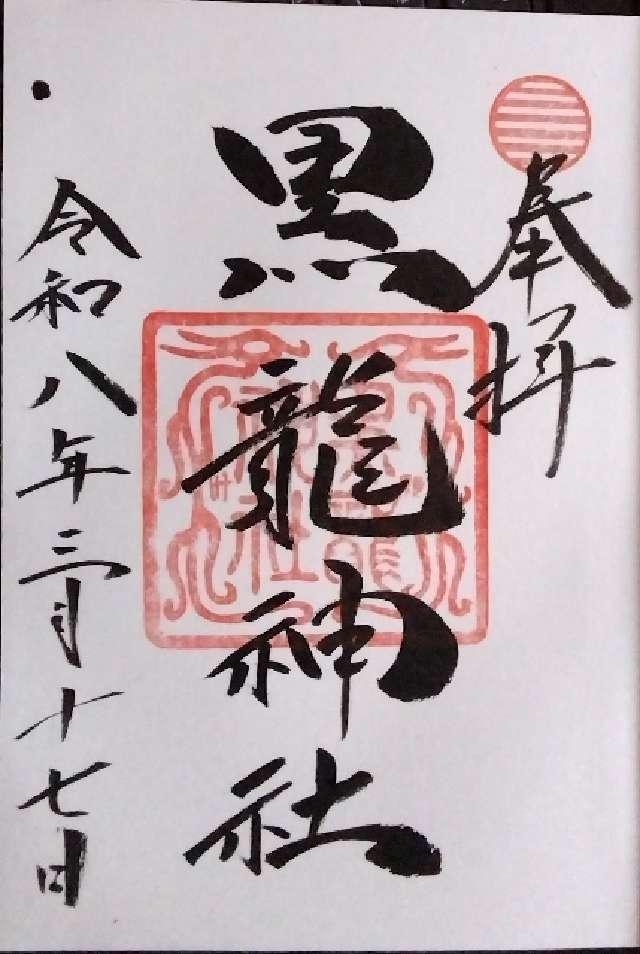 奉拝
黒龍神社
令和八年三月十七日